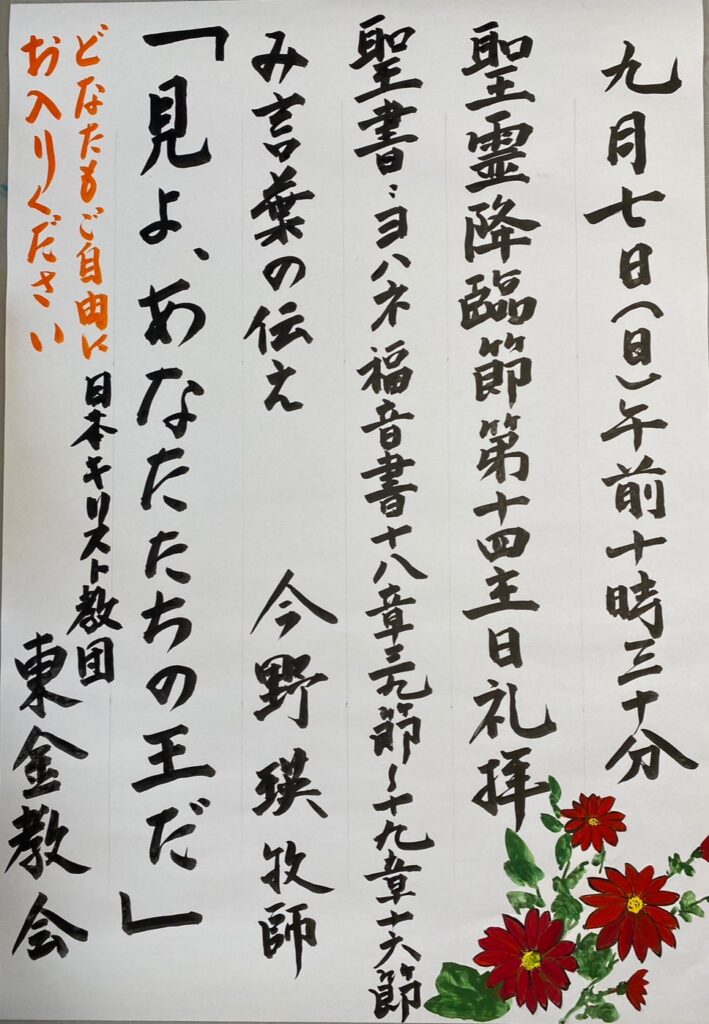 九月七日(日)午前十時三十分
聖霊降臨節第十四主日礼拝
聖書:ヨハネ福音書十八章三九節~十九章十六節
み言葉の伝え 今野瑛牧師
「見よ、あなたたちの王だ」
どなたもご自由に
お入りください
日本キリスト教団
東金教会